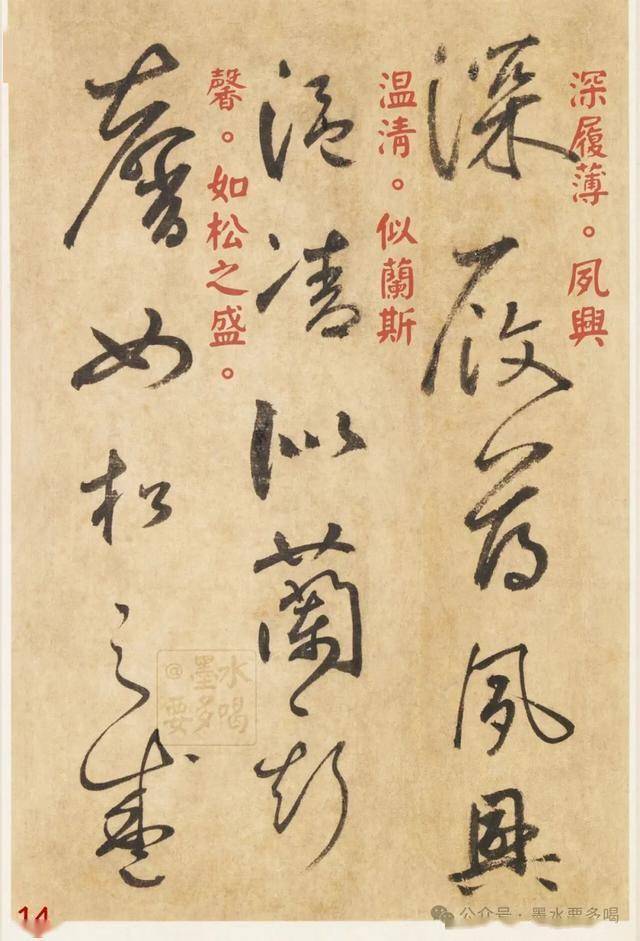 深履薄。夙興
深履薄夙興
温清。似蘭斯
温凊似蘭斯
馨。如松之盛。
馨如松之盛
@墨水
要多喝
14
公众号·墨水要多喝